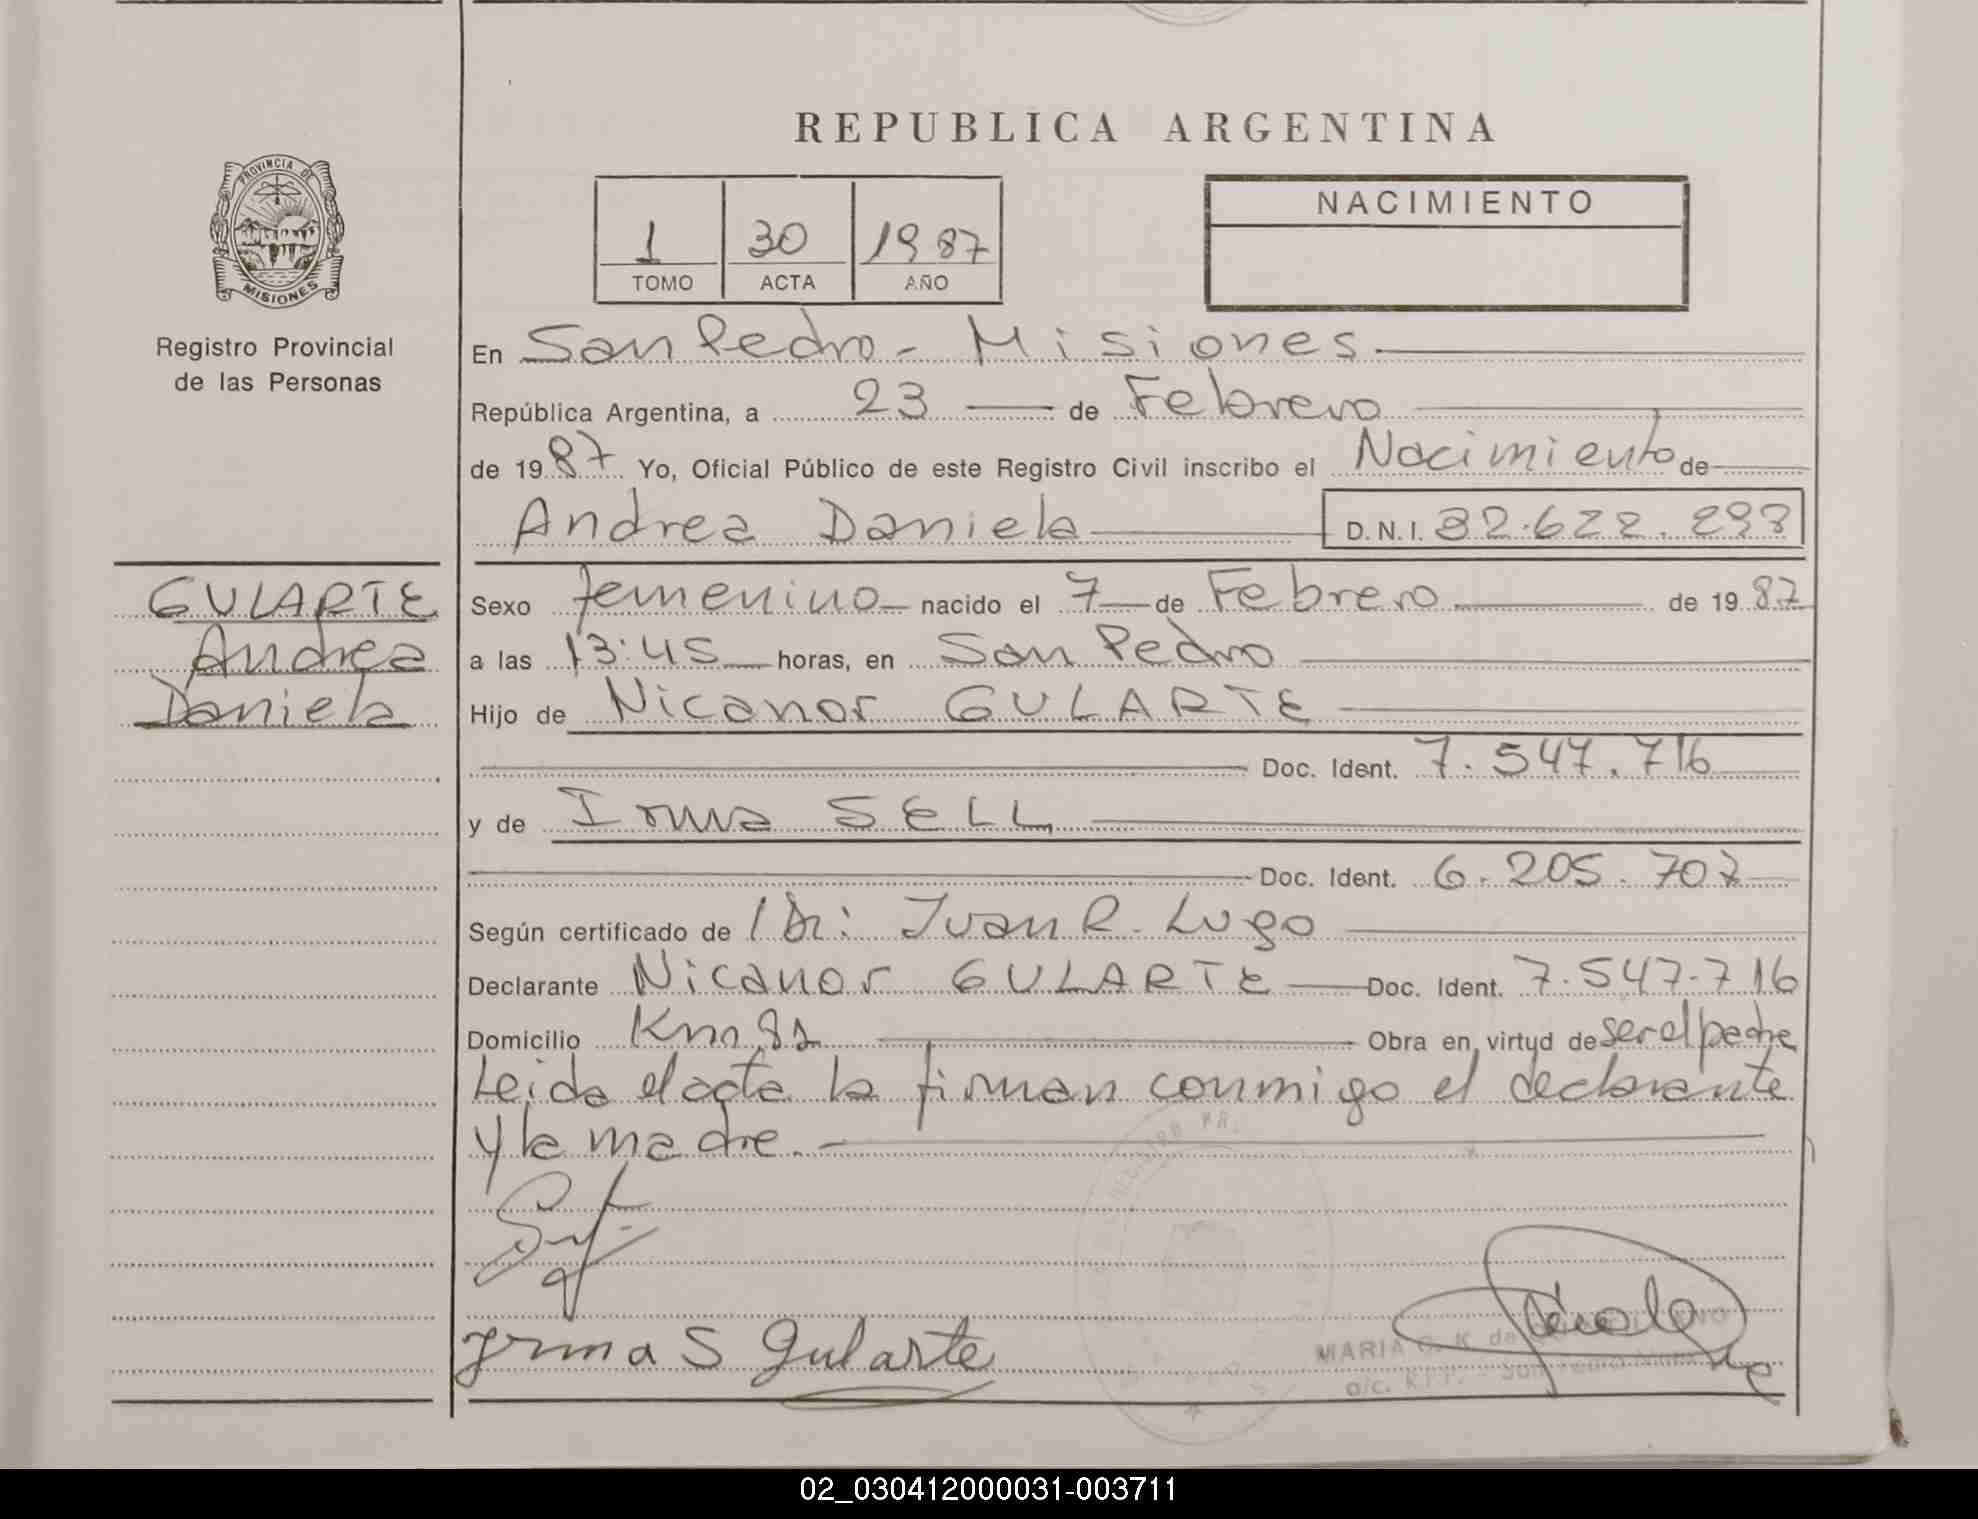 REPUBLICA ARGENTINA
PROVINCIA DE
MISIONES
Registro Provincial
de las Personas
1 30 1987
TOMO ACTA AÑO
NACIMIENTO
En San Pedro - Misiones.
República Argentina, a 23 de Febrero
de 1987 Yo, Oficial Público de este Registro Civil inscribo el Nacimiento de
Andrea Daniela D.N.I. 32.622.298
GULARTE
Andrea
Daniela
Sexo femenino nacido el 7 de Febrero de 1987
a las 13:45 horas, en San Pedro
Hijo de Nicanor GULARTE
Doc. Ident. 7.547.716
y de Irma SELL
Doc. Ident. 6.205.707
Según certificado de Dr: Juan R. Lugo
Declarante Nicanor GULARTE Doc. Ident. 7.547.716
Domicilio Km 82 Obra en virtud de ser el padre
Leida el acta la firman conmigo el declarante
y la madre.-
Irma S Gularte
MARIA
02_030412000031-003711